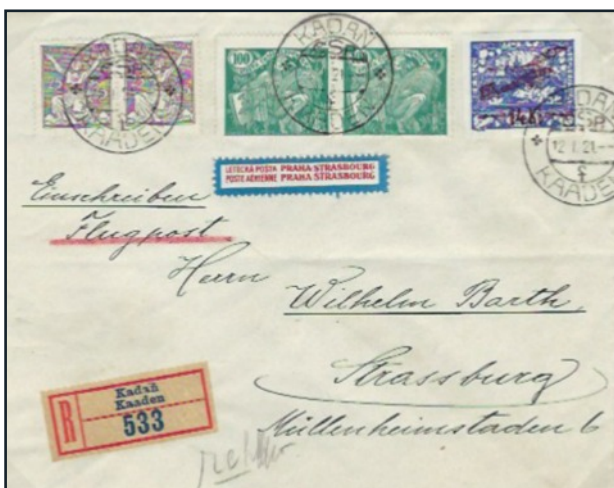 KADAŇ
KAADEN
100
KADAŇ
KAADEN
14K
KADAŇ
ČSR
12.I.21.
KAADEN
LETECKÁ POSTA PRAHA-STRASBOURG
POSTE AÉRIENNE PRAHA STRASBOURG
Einschreiben
Flugpost
Herrn
Wilhelm Barth.
Strassburg
Müllenheimstaden 6
R
Kadaň
Kaaden
533